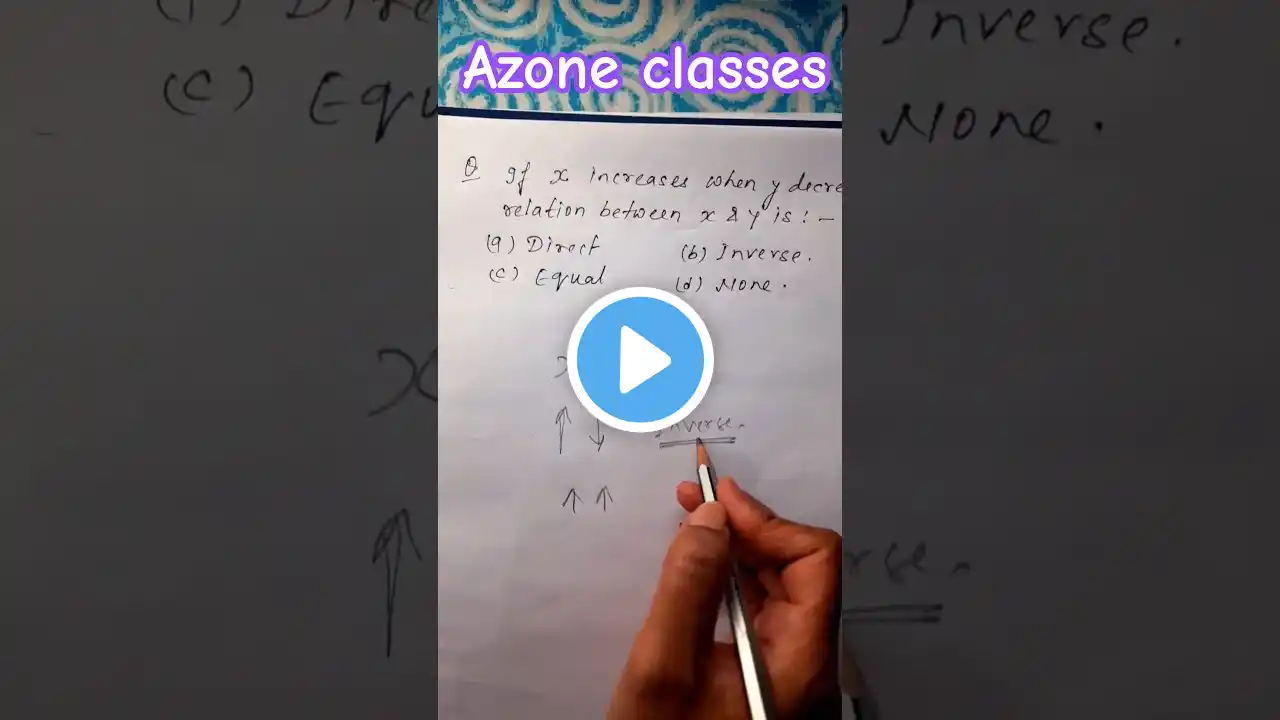 Azone classes
Q If x increases when y decre
relation between x & y is : -
(a) Direct (b) Inverse.
(c) Equal (d) None.
x
Inverse.
Inverse.
(c) Equ
None.
x
rse.